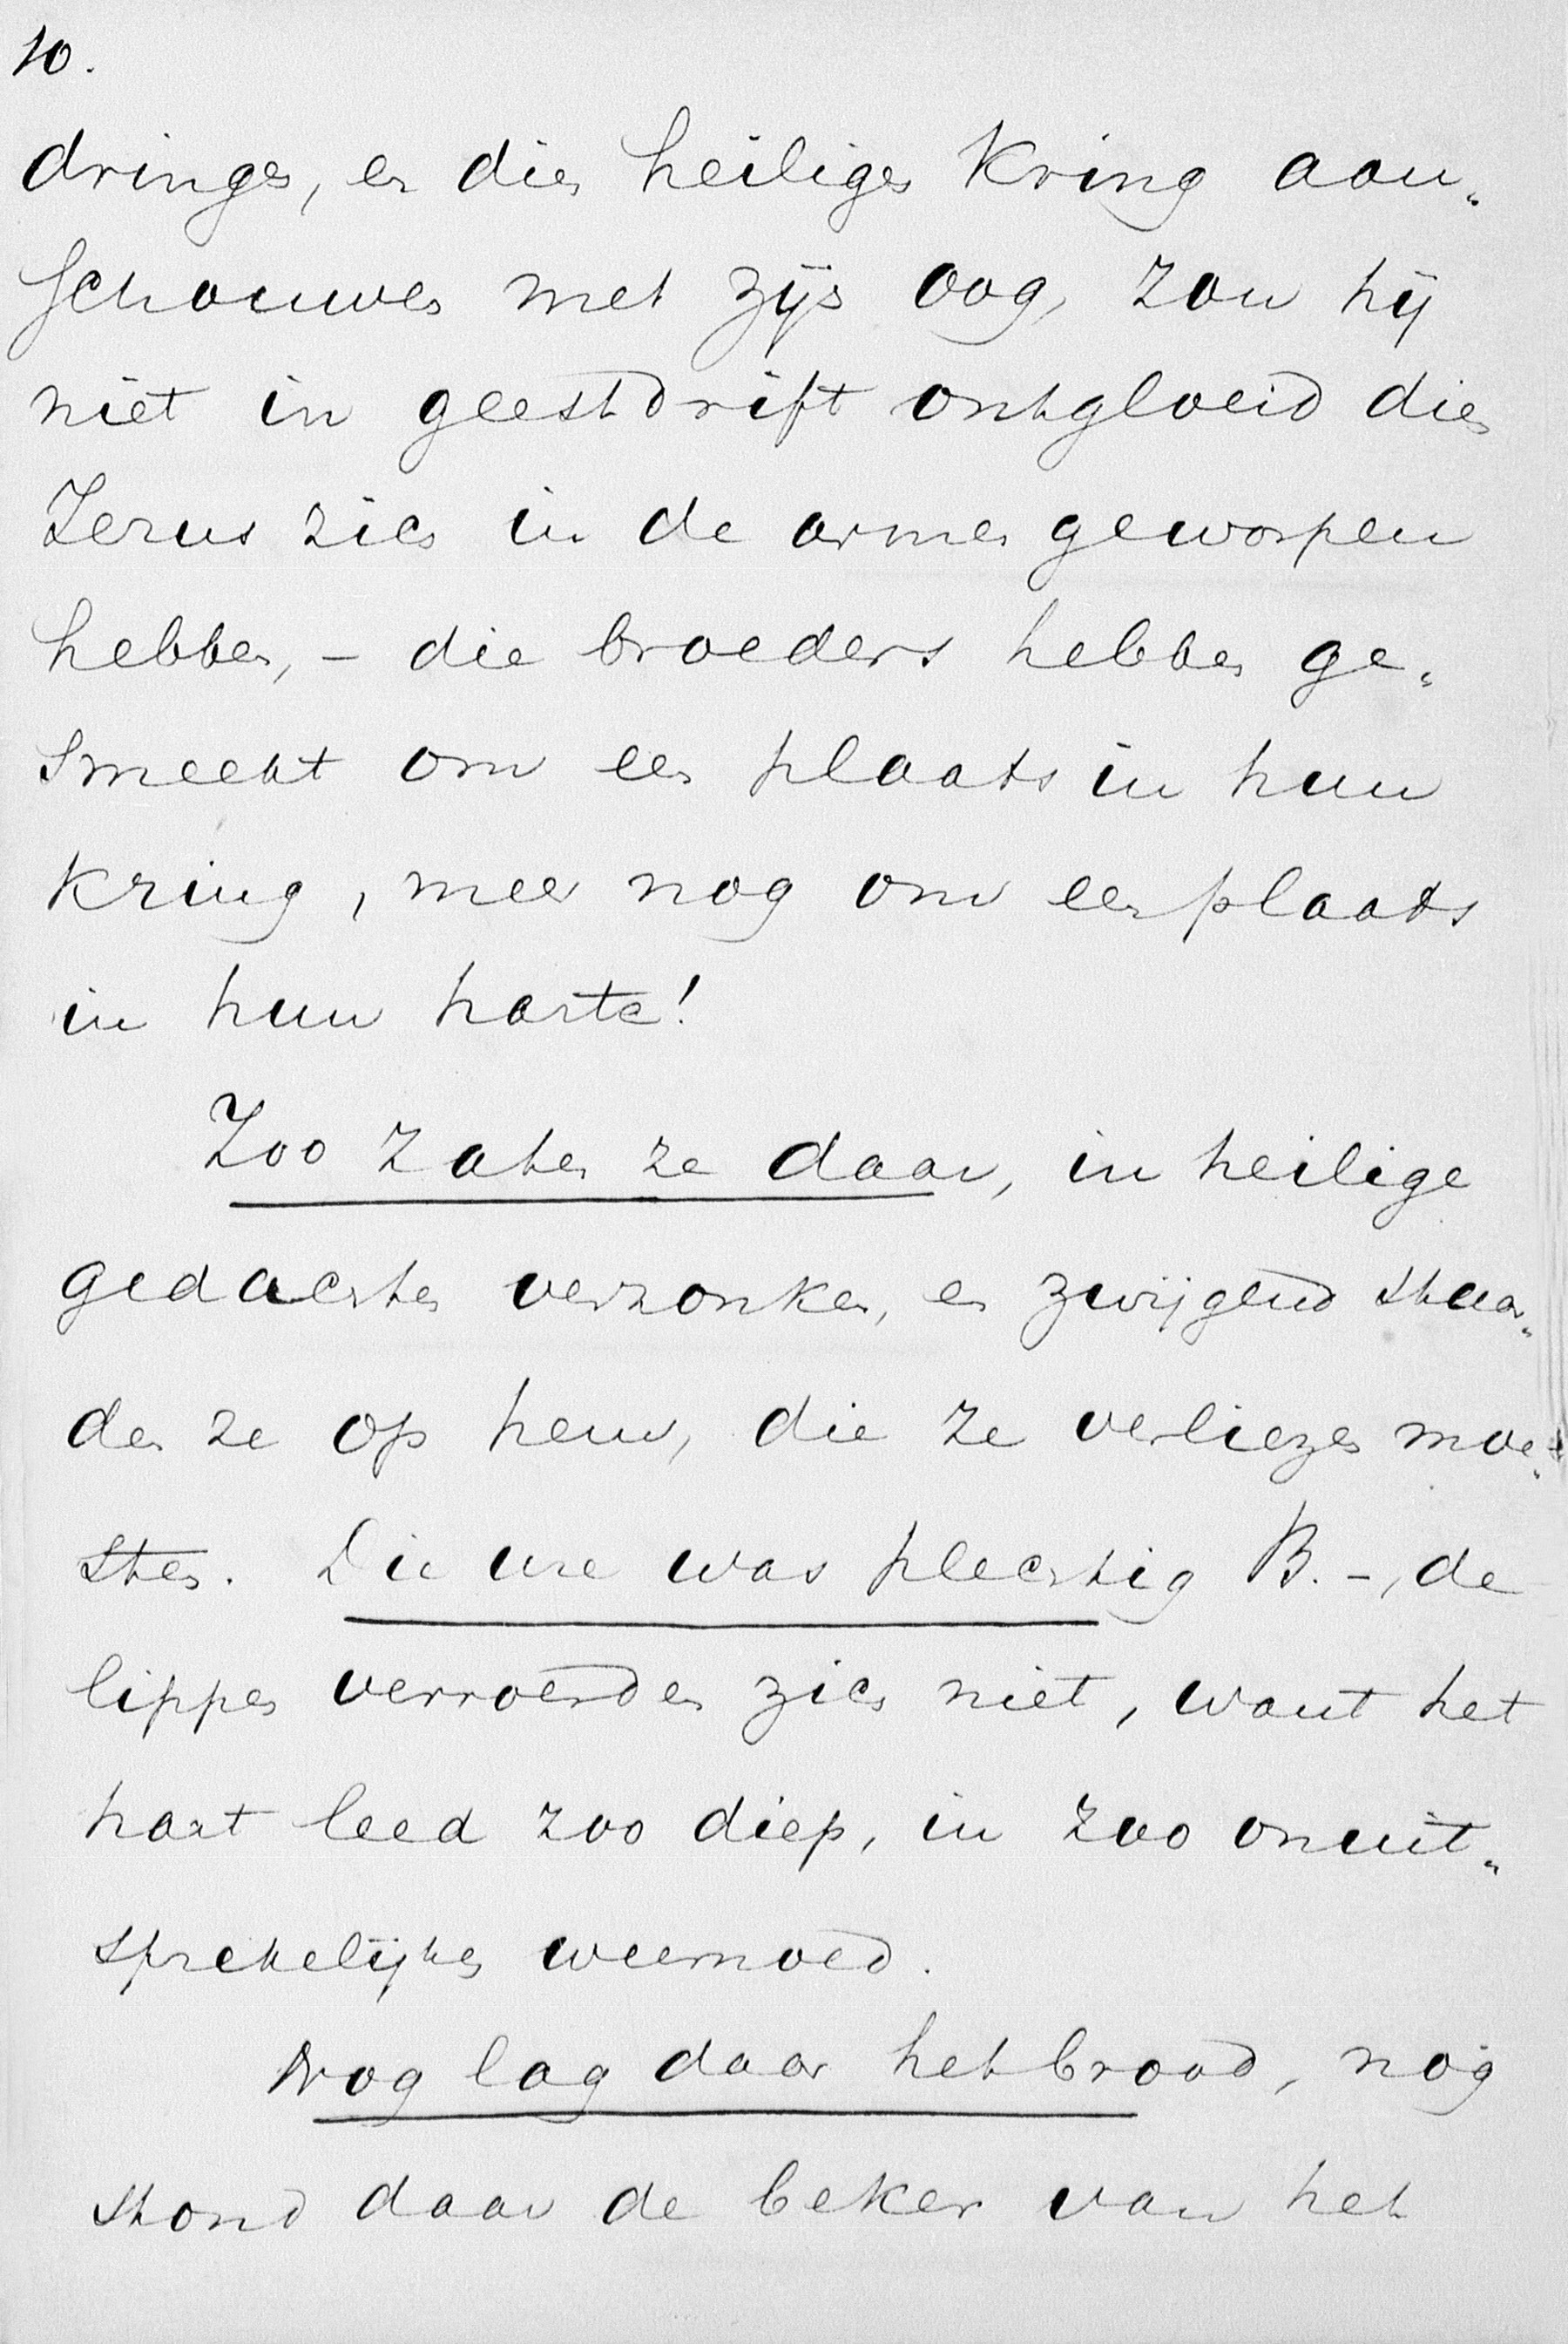 10.
dringen, en dien heiligen Kring aan„
schouwen met zijn oog, zou hij
niet in geestdrift ontgloeid dien
Jezus zich in de armen geworpen
hebben, – die broeders hebben ge„
smeekt om een plaats in hun
Kring, meer nog om een plaats
in hun harte!
Zoo zaten ze daar, in heilige
gedachten verzonken, en zwijgend staar„
den ze op hem, die ze verliezen moe„
sten. Die ure was plechtig B. –, de
lippen verroerden zich niet, want het
hart leed zoo diep, in zoo onuit„
sprekelijken weemoed.
Nog lag daar het brood, nog
stond daar de beker van het